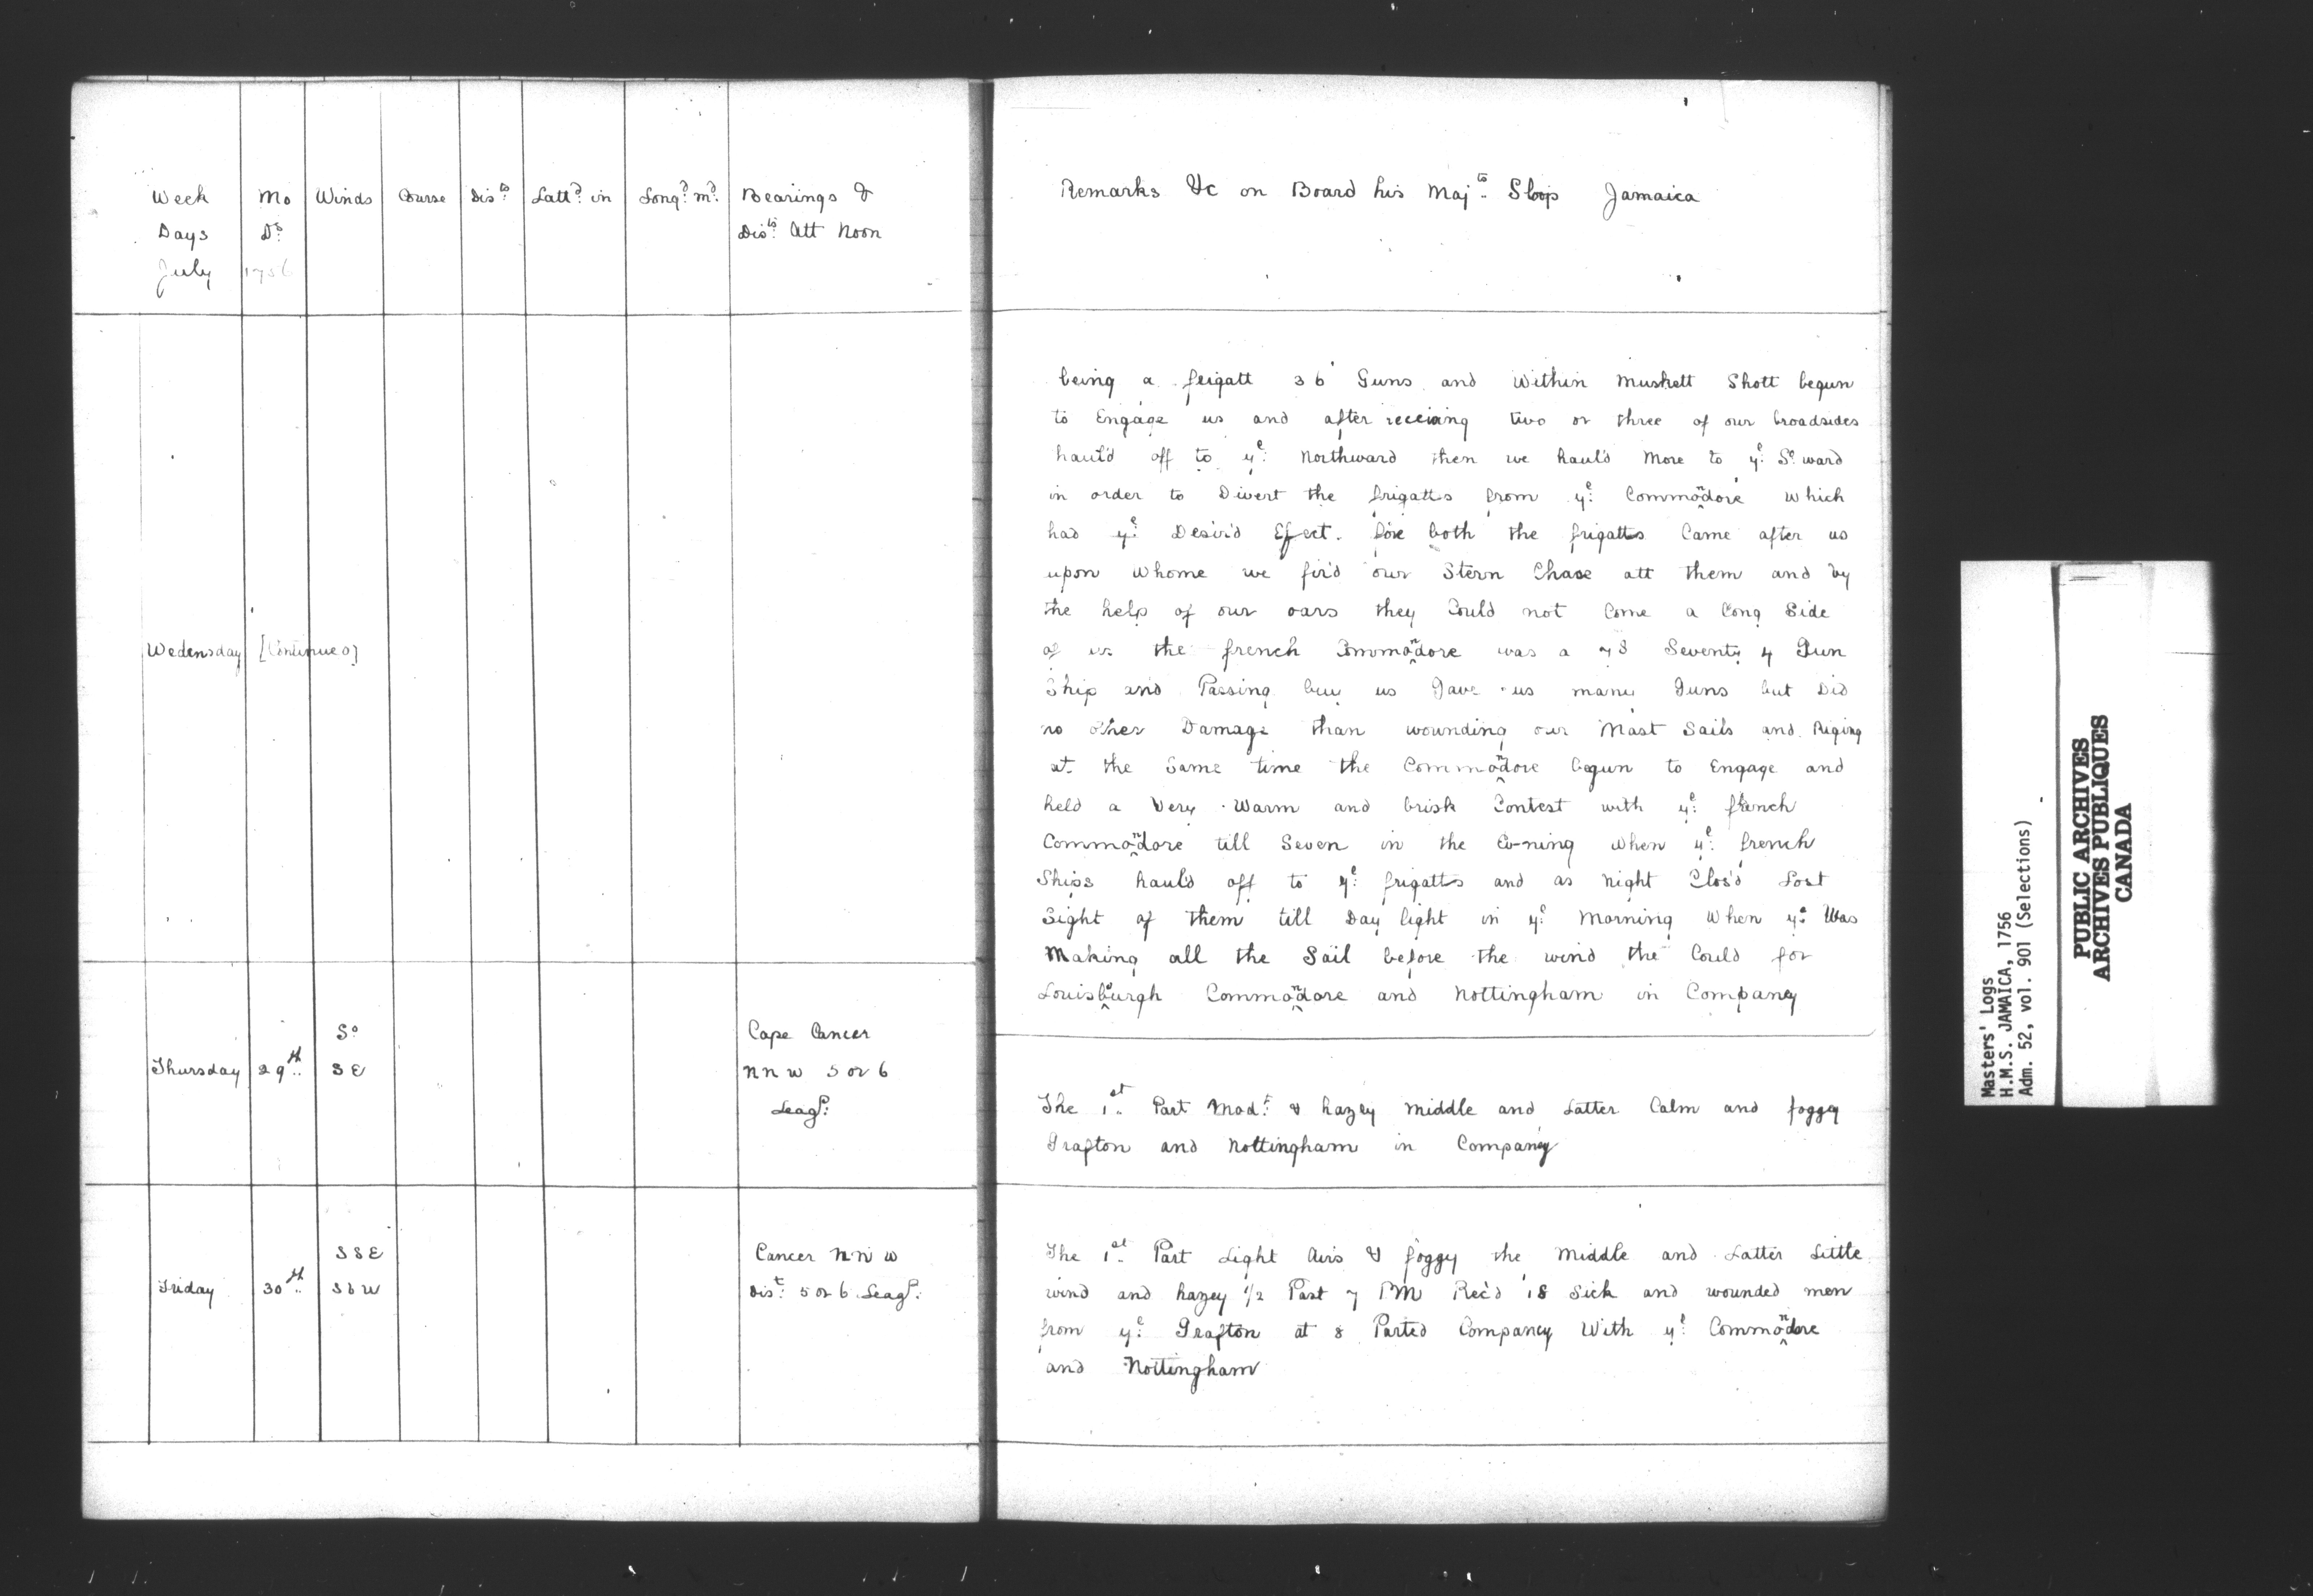 Week Mo Winds Course Dis:ts Latt:d in Long:d m:d Bearings &
Days D:s Dis:ts Att Noon
July 1756
Wedensday [Continued]
Thursday 29th So SE Cape Cancer
NNW 5 or 6
Leag:s
Friday 30th SSE SbW Cancer NNW
Dis:t 5 or 6 Leag:s
Remarks &c on Board his Maj:ts Sloop Jamaica
being a frigatt 36 Guns and Within Muskett Shott begun
to Engage us and after receiving two or three of our broadsides
haul'd off to y:e Northward then we haul'd More to y:e So ward
in order to Divert the frigatts from y:e Commondore which
had y:e Desir'd Efect. fore both the frigatts Came after us
upon whome we fir'd our Stern Chase att them and by
the help of our oars they Could not Come a long Side
of us the french Commondore was a 73 Seventy 4 Gun
Ship and Passing buy us Gave us many Guns but Did
no other Damage than wounding our Mast Sails and Riging
at the Same time the Commondore begun to Engage and
held a Very Warm and brisk Contest with y:e french
Commondore till Seven in the Ev-ning when y:e french
Ships haul'd off to y:e frigatts and as Night Clos'd Lost
Sight of them till Day light in y:e Morning When y:e Was
Making all the Sail before the wind the Could for
Louisburgh Commondore and Nottingham in Company
The 1st Part Mod:t & hazey Middle and Latter Calm and foggy
Grafton and Nottingham in Company
The 1st Part Light Airs & foggy the Middle and Latter Little
wind and hazey 1/2 Past 7 PM Rec'd 18 Sick and wounded men
from y:e Grafton at 8 Parted Company With y:e Commondore
and Nottingham
Masters' Logs
H.M.S. JAMAICA, 1756
Adm. 52, vol. 901 (Selections)
PUBLIC ARCHIVES
ARCHIVES PUBLIQUES
CANADA